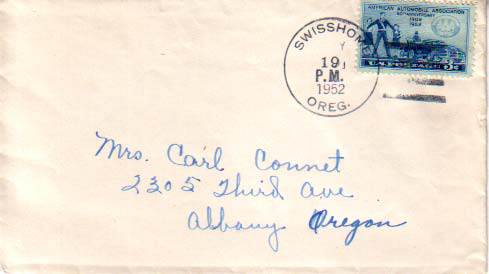 AMERICAN AUTOMOBILE ASSOCIATION
50TH ANNIVERSARY
1902
1952
U.S. POSTAGE 3¢
SWISSHOM
19
P.M.
1952
OREG.
Mrs. Carl Connet
2305 Third Ave
Albany Oregon